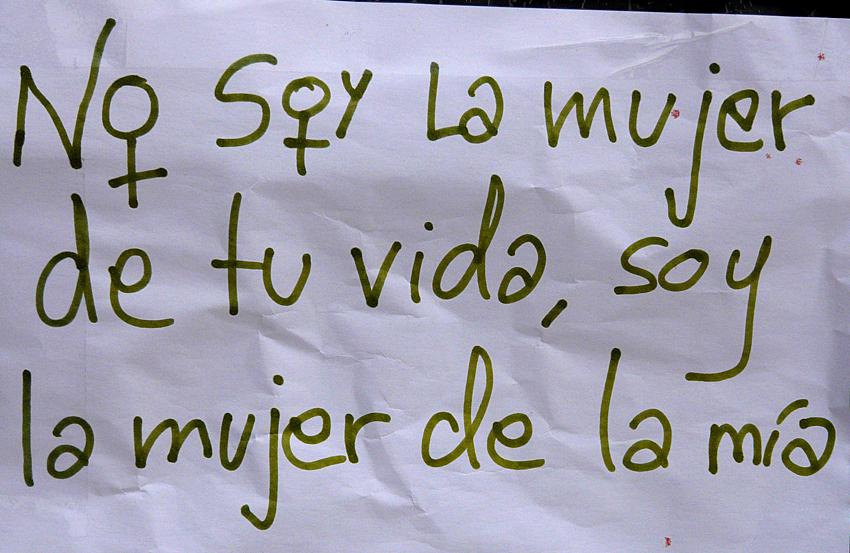 No Soy La mujer
de tu vida, soy
la mujer de la mía